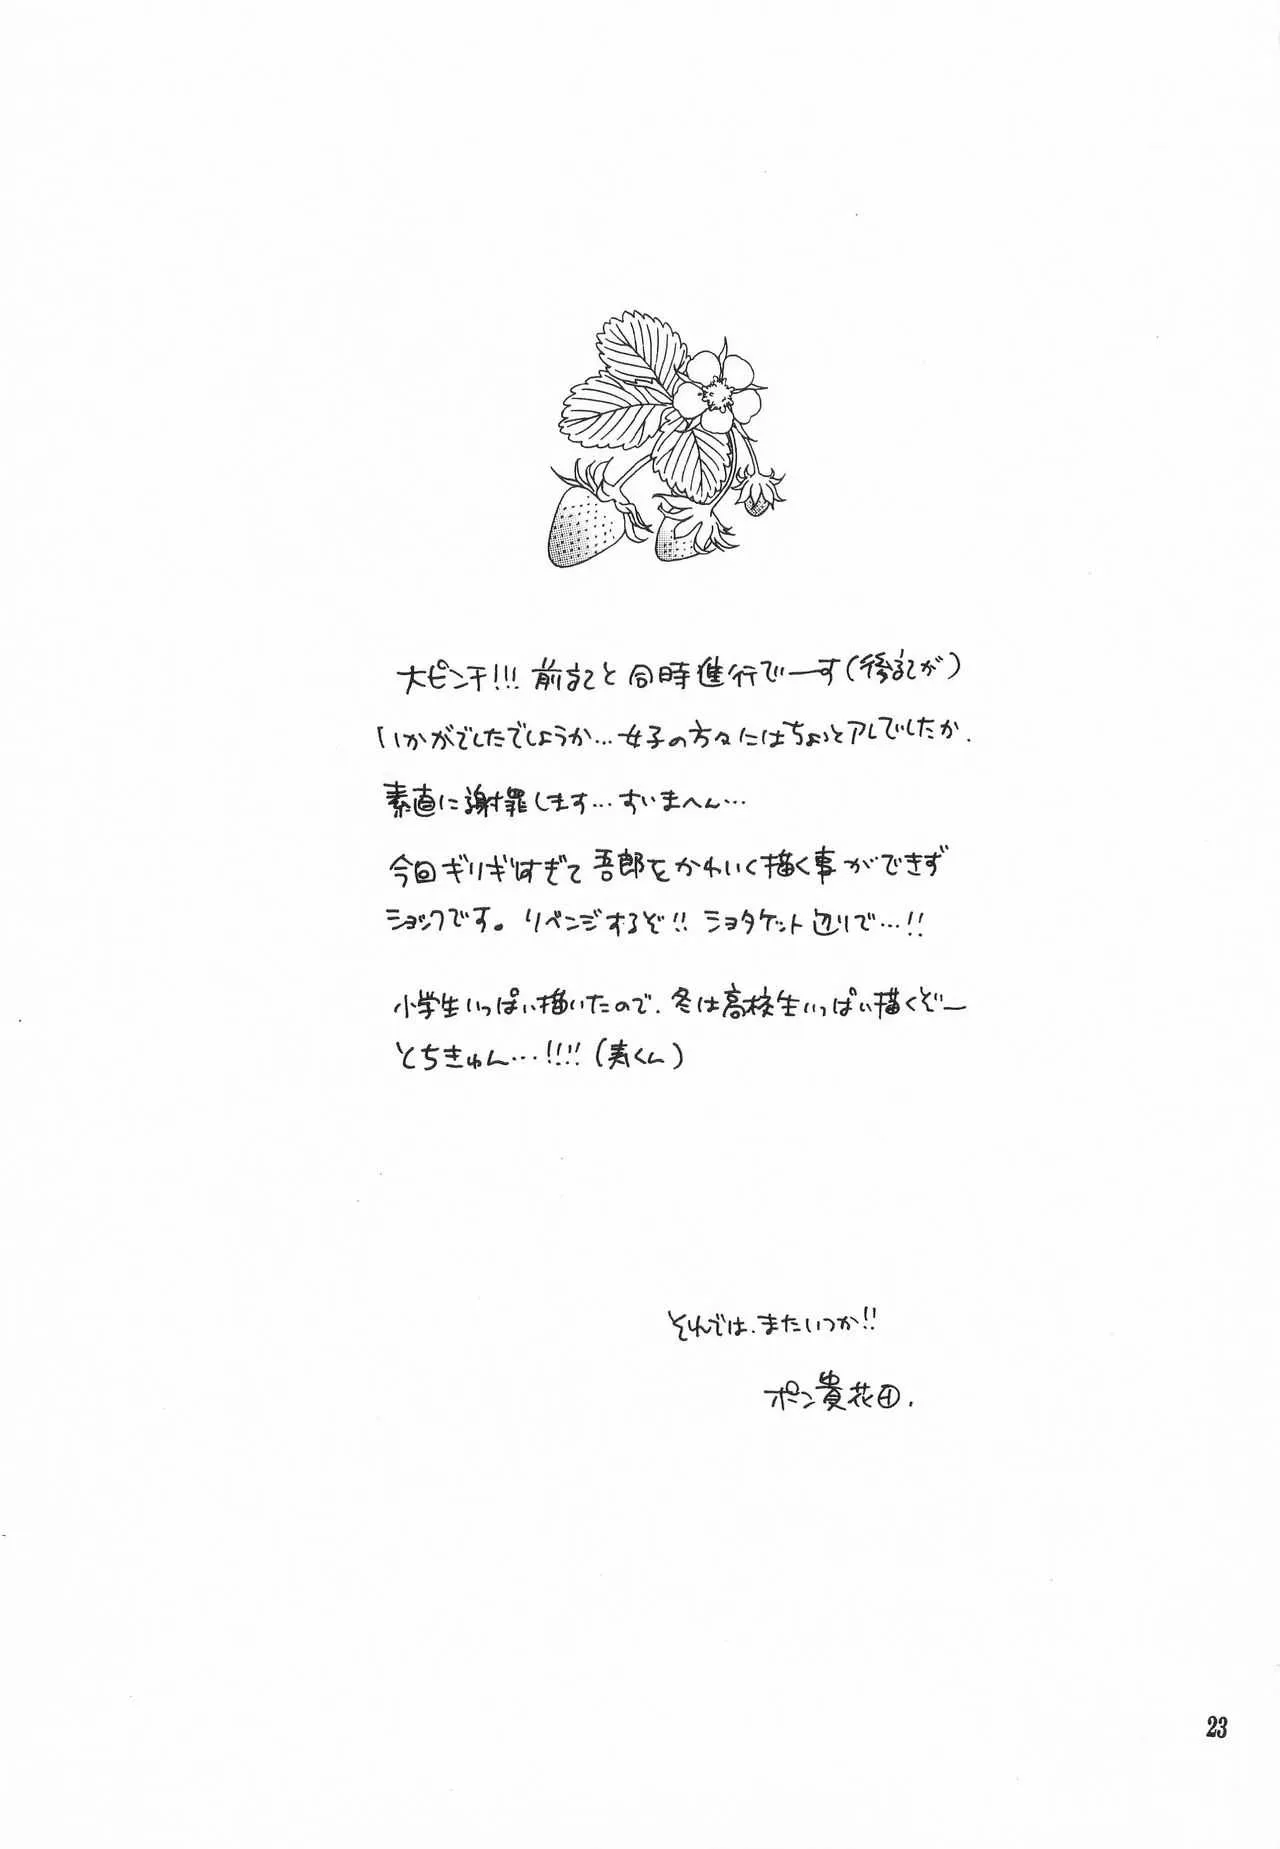 大ピンチ!!! 前記と同時進行でーす(後記が)
いかがでしたでしょうか…女子の方々にはちょっとアレでしたか.
素直に謝罪します…すいまへん…
今回ギリギリすぎて吾郎をかわいく描く事ができず
ショックです。リベンジするぞ!! ショタケット辺りで…!!
小学生いっぱい描いたので、冬は高校生いっぱい描くぞー
とちきゅん…!!!! (寿くん)
それでは、またいつか!!
ポン貴花田.
23